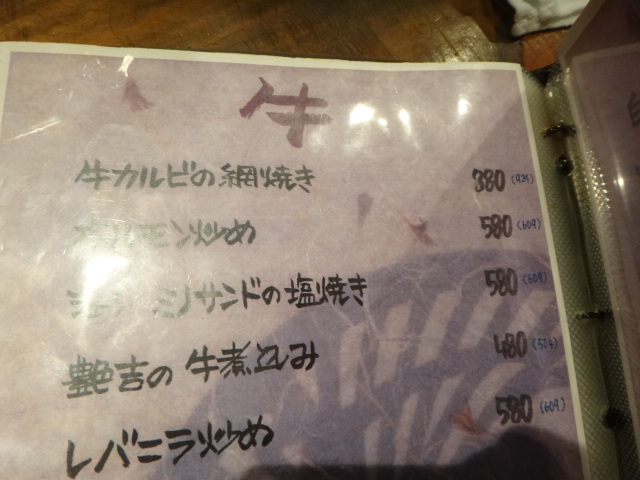 牛
牛カルビの網焼き 380 (924)
ホルモン炒め 580 (609)
ミノサンドの塩焼き 580 (609)
艶吉の牛煮込み 480 (504)
レバニラ炒め 580 (609)